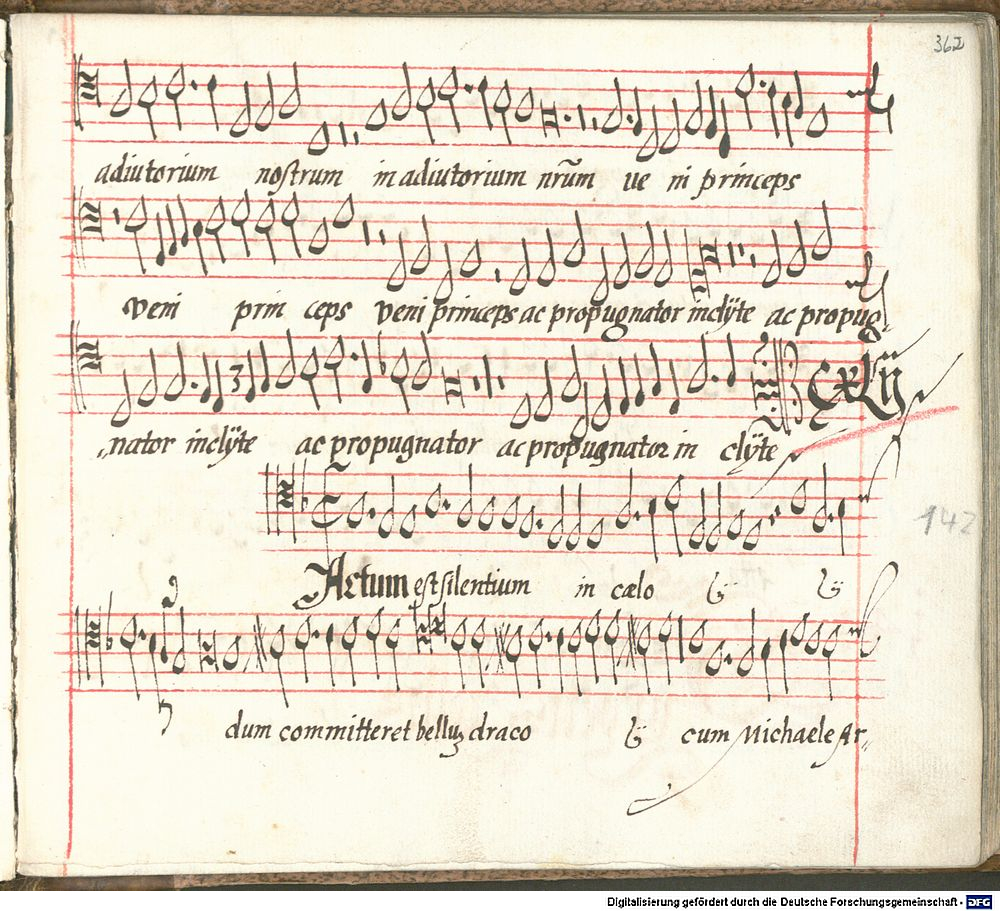 362
adiutorium nostrum in adiutorium nrũm ue ni princeps
veni prin ceps veni princeps ac propugnator inclÿte ac propug„
„nator inclÿte ac propugnator ac propugnator in clÿte
142
Factum est silentium in cælo ij ij
dum committeret belluʒ draco ij cum Michaele Ar„
Digitalisierung gefördert durch die Deutsche Forschungsgemeinschaft - DFG